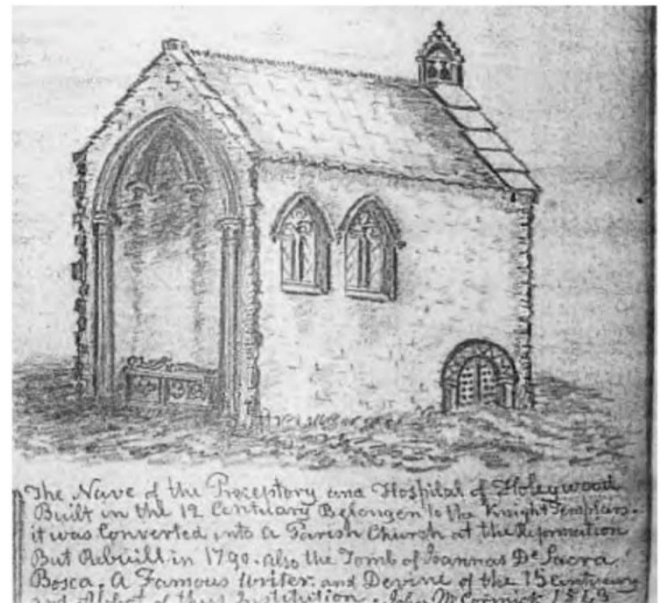 The Nave of the Preceptory and Hospital of Holeywood
Built in the 12 Centuary Belongen to the Knight Templars.
it was Converted into a Parish Church at the Reformation
But Rebuill in 1790. Also the Tomb of Joannas De Sacra
Bosca. A Famous Writer. and Devine of the 13 Centuary
and Abbot of this Institution. John McCormick 1843